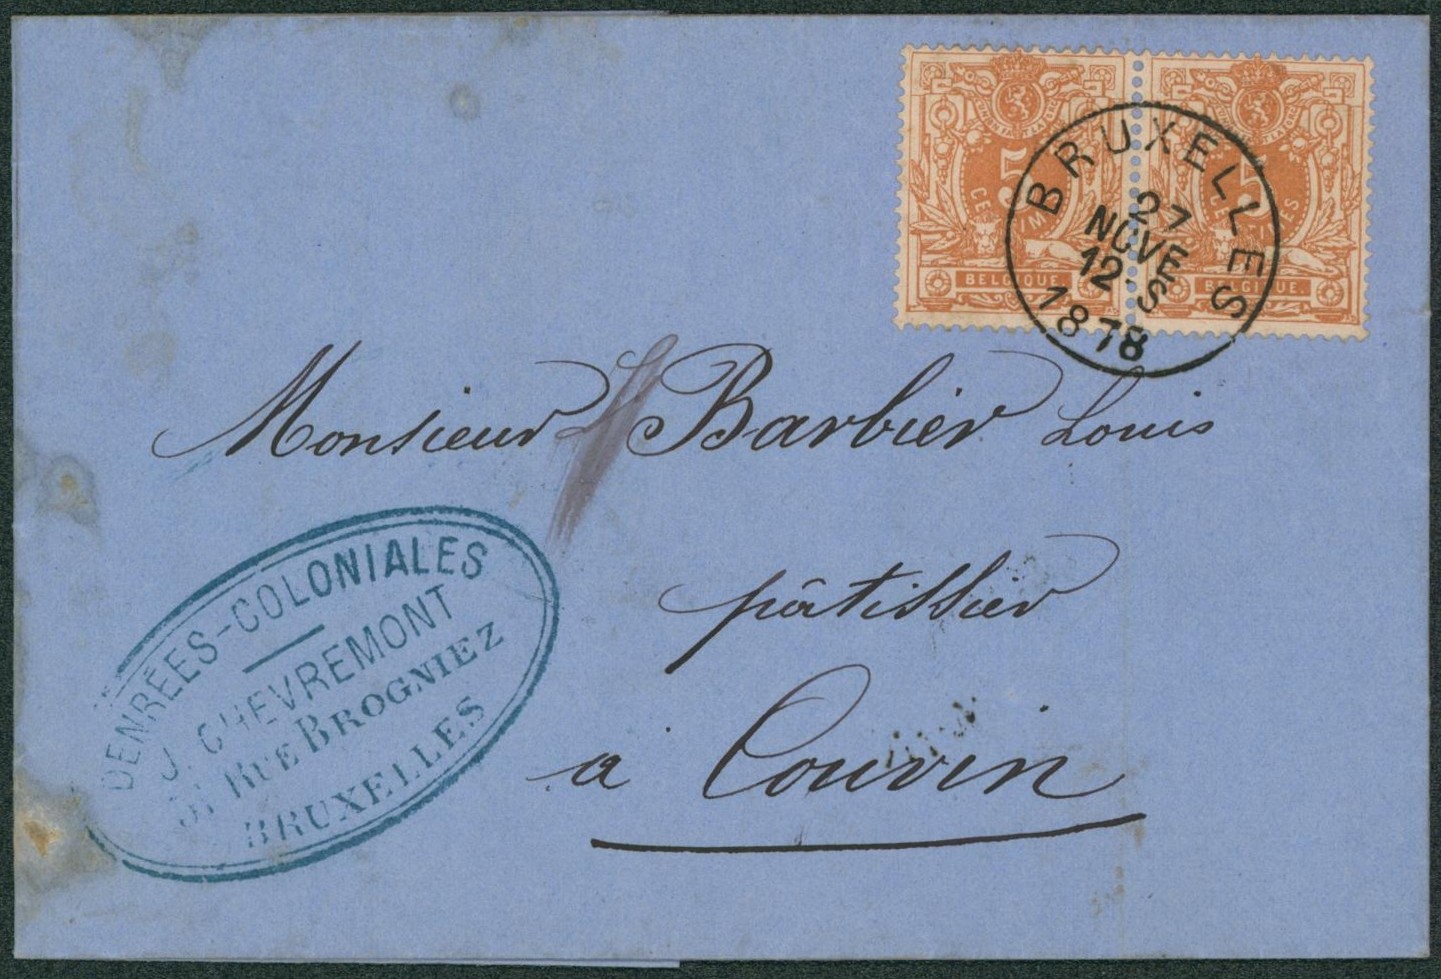 5
CENTIMES
BELGIQUE.
5
CENTIMES
BELGIQUE.
BRUXELLES
27
NOVE
12-S
1878
Monsieur Barbier Louis
pâtissier
à Couvin
DENRÉES-COLONIALES
J. CHEVREMONT
RUE BROGNIEZ
BRUXELLES